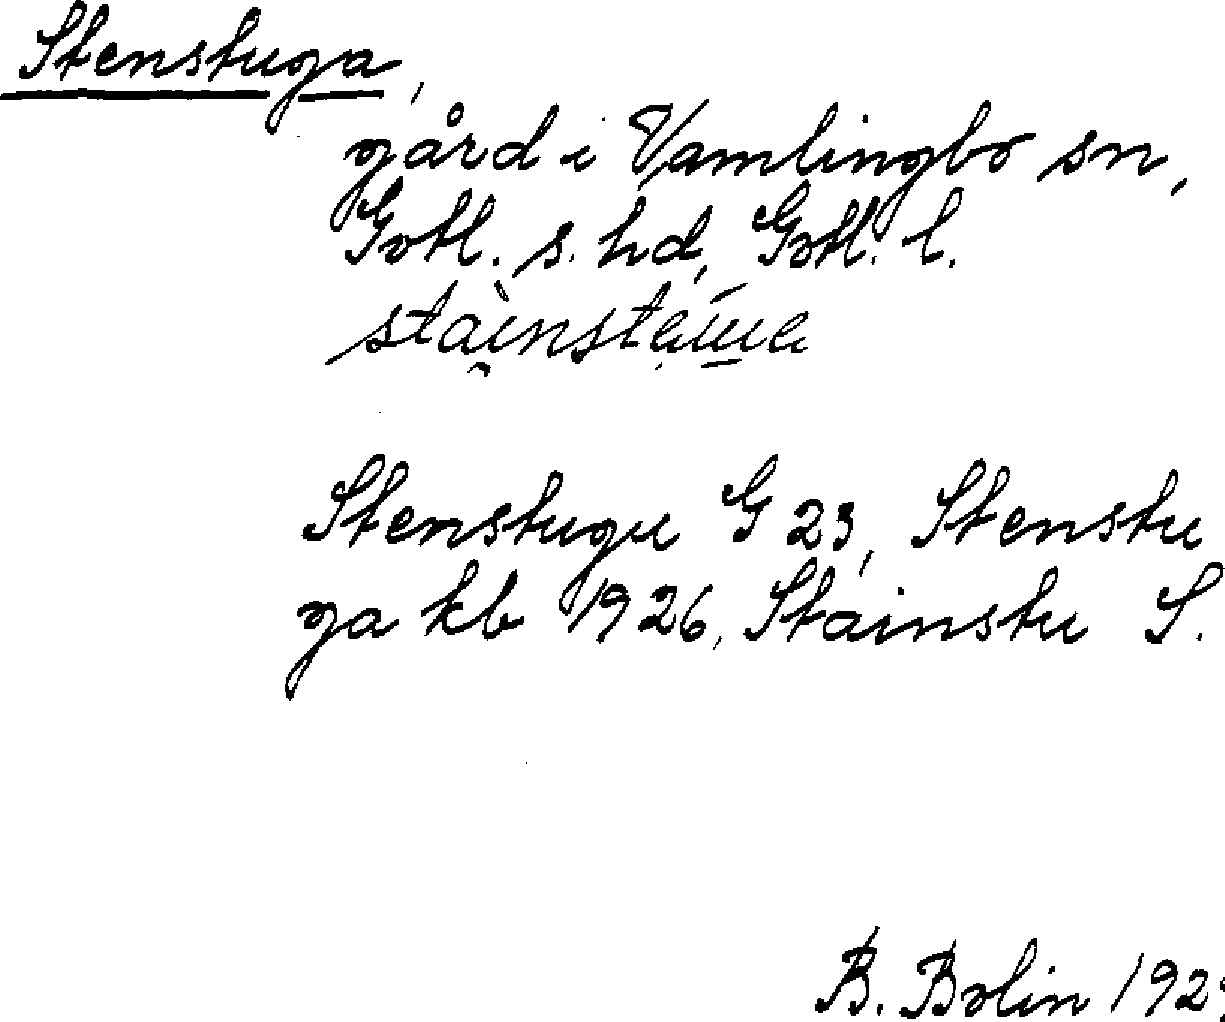 Stenstuga,
gård i Vamlingbo sn,
Gotl. s. hd, Gotl. l.
Stenstugu G 23, Stenstu
ga kb 1926, Stainstu S.
B. Bolin 192